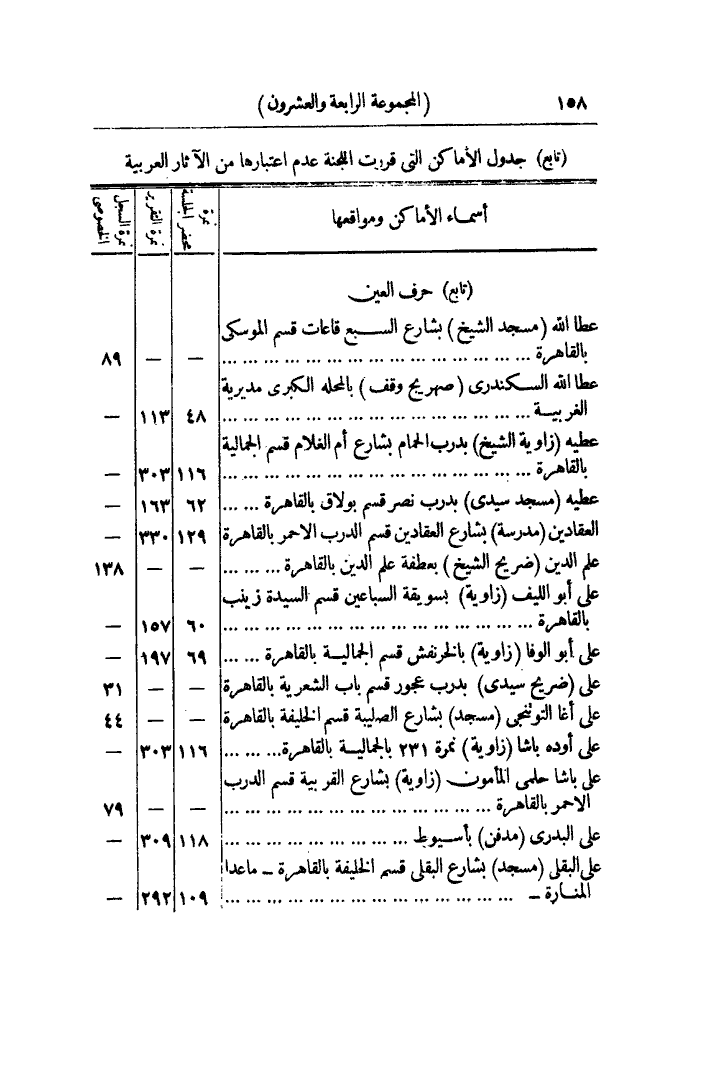 ١٥٨ (المجموعة الرابعة والعشرون)
(تابع) جدول الأماكن التى قررت اللجنة عدم اعتبارها من الآثار العربية
أسماء الأماكن ومواقعها نمرة محضر الجلسة نمرة التقرير نمرة السجل الخصوصى
(تابع) حرف العين
عطا الله (مسجد الشيخ) بشارع السبع قاعات قسم الموسكى
بالقاهرة ... ... ... ... ... ... ... ... ... ... ... ... ... ... ... — — ٨٩
عطا الله السكندرى (صهريج وقف) بالمحله الكبرى مديرية
الغربية ... ... ... ... ... ... ... ... ... ... ... ... ... ... ... ٤٨ ١١٣ —
عطيه (زاوية الشيخ) بدرب الحمام بشارع أم الغلام قسم الجمالية
بالقاهرة ... ... ... ... ... ... ... ... ... ... ... ... ... ... ... ١١٦ ٣٠٣ —
عطيه (مسجد سيدى) بدرب نصر قسم بولاق بالقاهرة ... ... ٦٢ ١٦٣ —
العقادين (مدرسة) بشارع العقادين قسم الدرب الاحمر بالقاهرة ١٢٩ ٣٣٠ —
علم الدين (ضريح الشيخ) بعطفة علم الدين بالقاهرة ... ... ... — — ١٣٨
على أبو الليف (زاوية) بسويقة السباعين قسم السيدة زينب
بالقاهرة ... ... ... ... ... ... ... ... ... ... ... ... ... ... ... ٦٠ ١٥٧ —
على أبو الوفا (زاوية) بالخرنفش قسم الجمالية بالقاهرة ... ... ٦٩ ١٩٧ —
على (ضريح سيدى) بدرب عجور قسم باب الشعرية بالقاهرة — — ٣١
على أغا التوتنجى (مسجد) بشارع الصليبة قسم الخليفة بالقاهرة — — ٤٤
على أوده باشا (زاوية) نمرة ٢٣١ بالجمالية بالقاهرة... ... ... ١١٦ ٣٠٣ —
على باشا حلمى المأمون (زاوية) بشارع القربية قسم الدرب
الاحمر بالقاهرة ... ... ... ... ... ... ... ... ... ... ... ... ... — — ٧٩
على البدرى (مدفن) بأسيوط ... ... ... ... ... ... ... ... ... ١١٨ ٣٠٩ —
على البقلى (مسجد) بشارع البقلى قسم الخليفة بالقاهرة – ماعدا
المنارة – ... ... ... ... ... ... ... ... ... ... ... ... ... ... ١٠٩ ٢٩٢ —